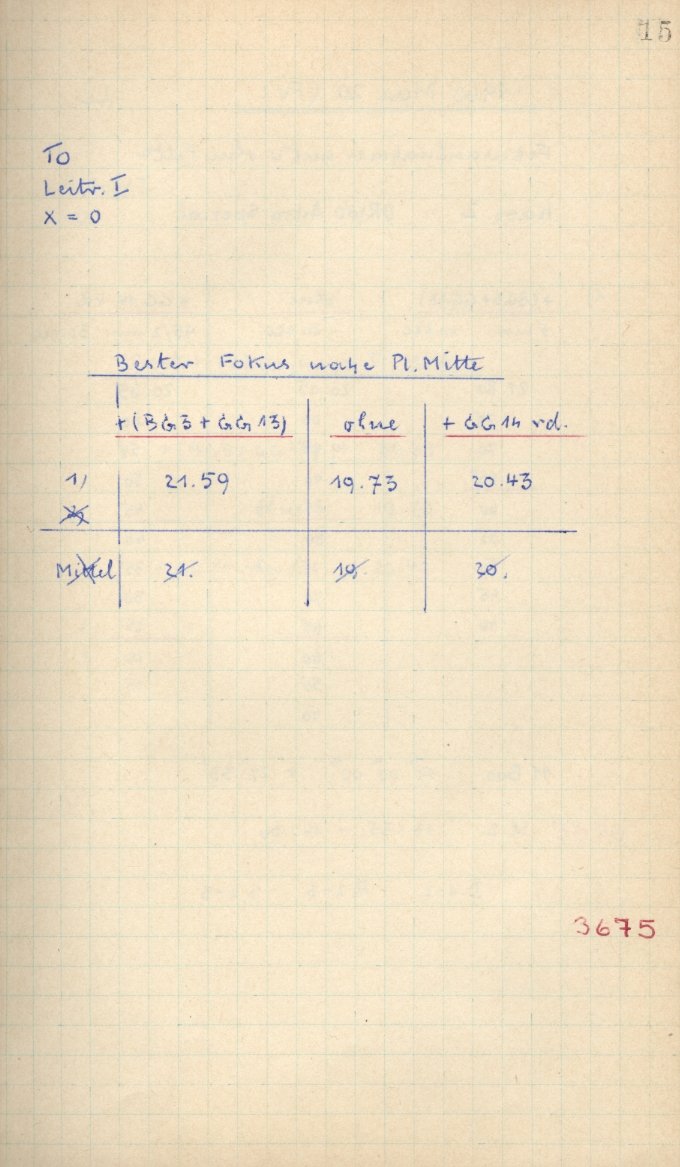 15
To
Leitr. I
X = 0
Bester Fokus nahe Pl. Mitte
+(BG3 + GG13) ohne + GG14 vd.
1) 21.59 19.73 20.43
2)
Mittel 21. 19. 20.
3675